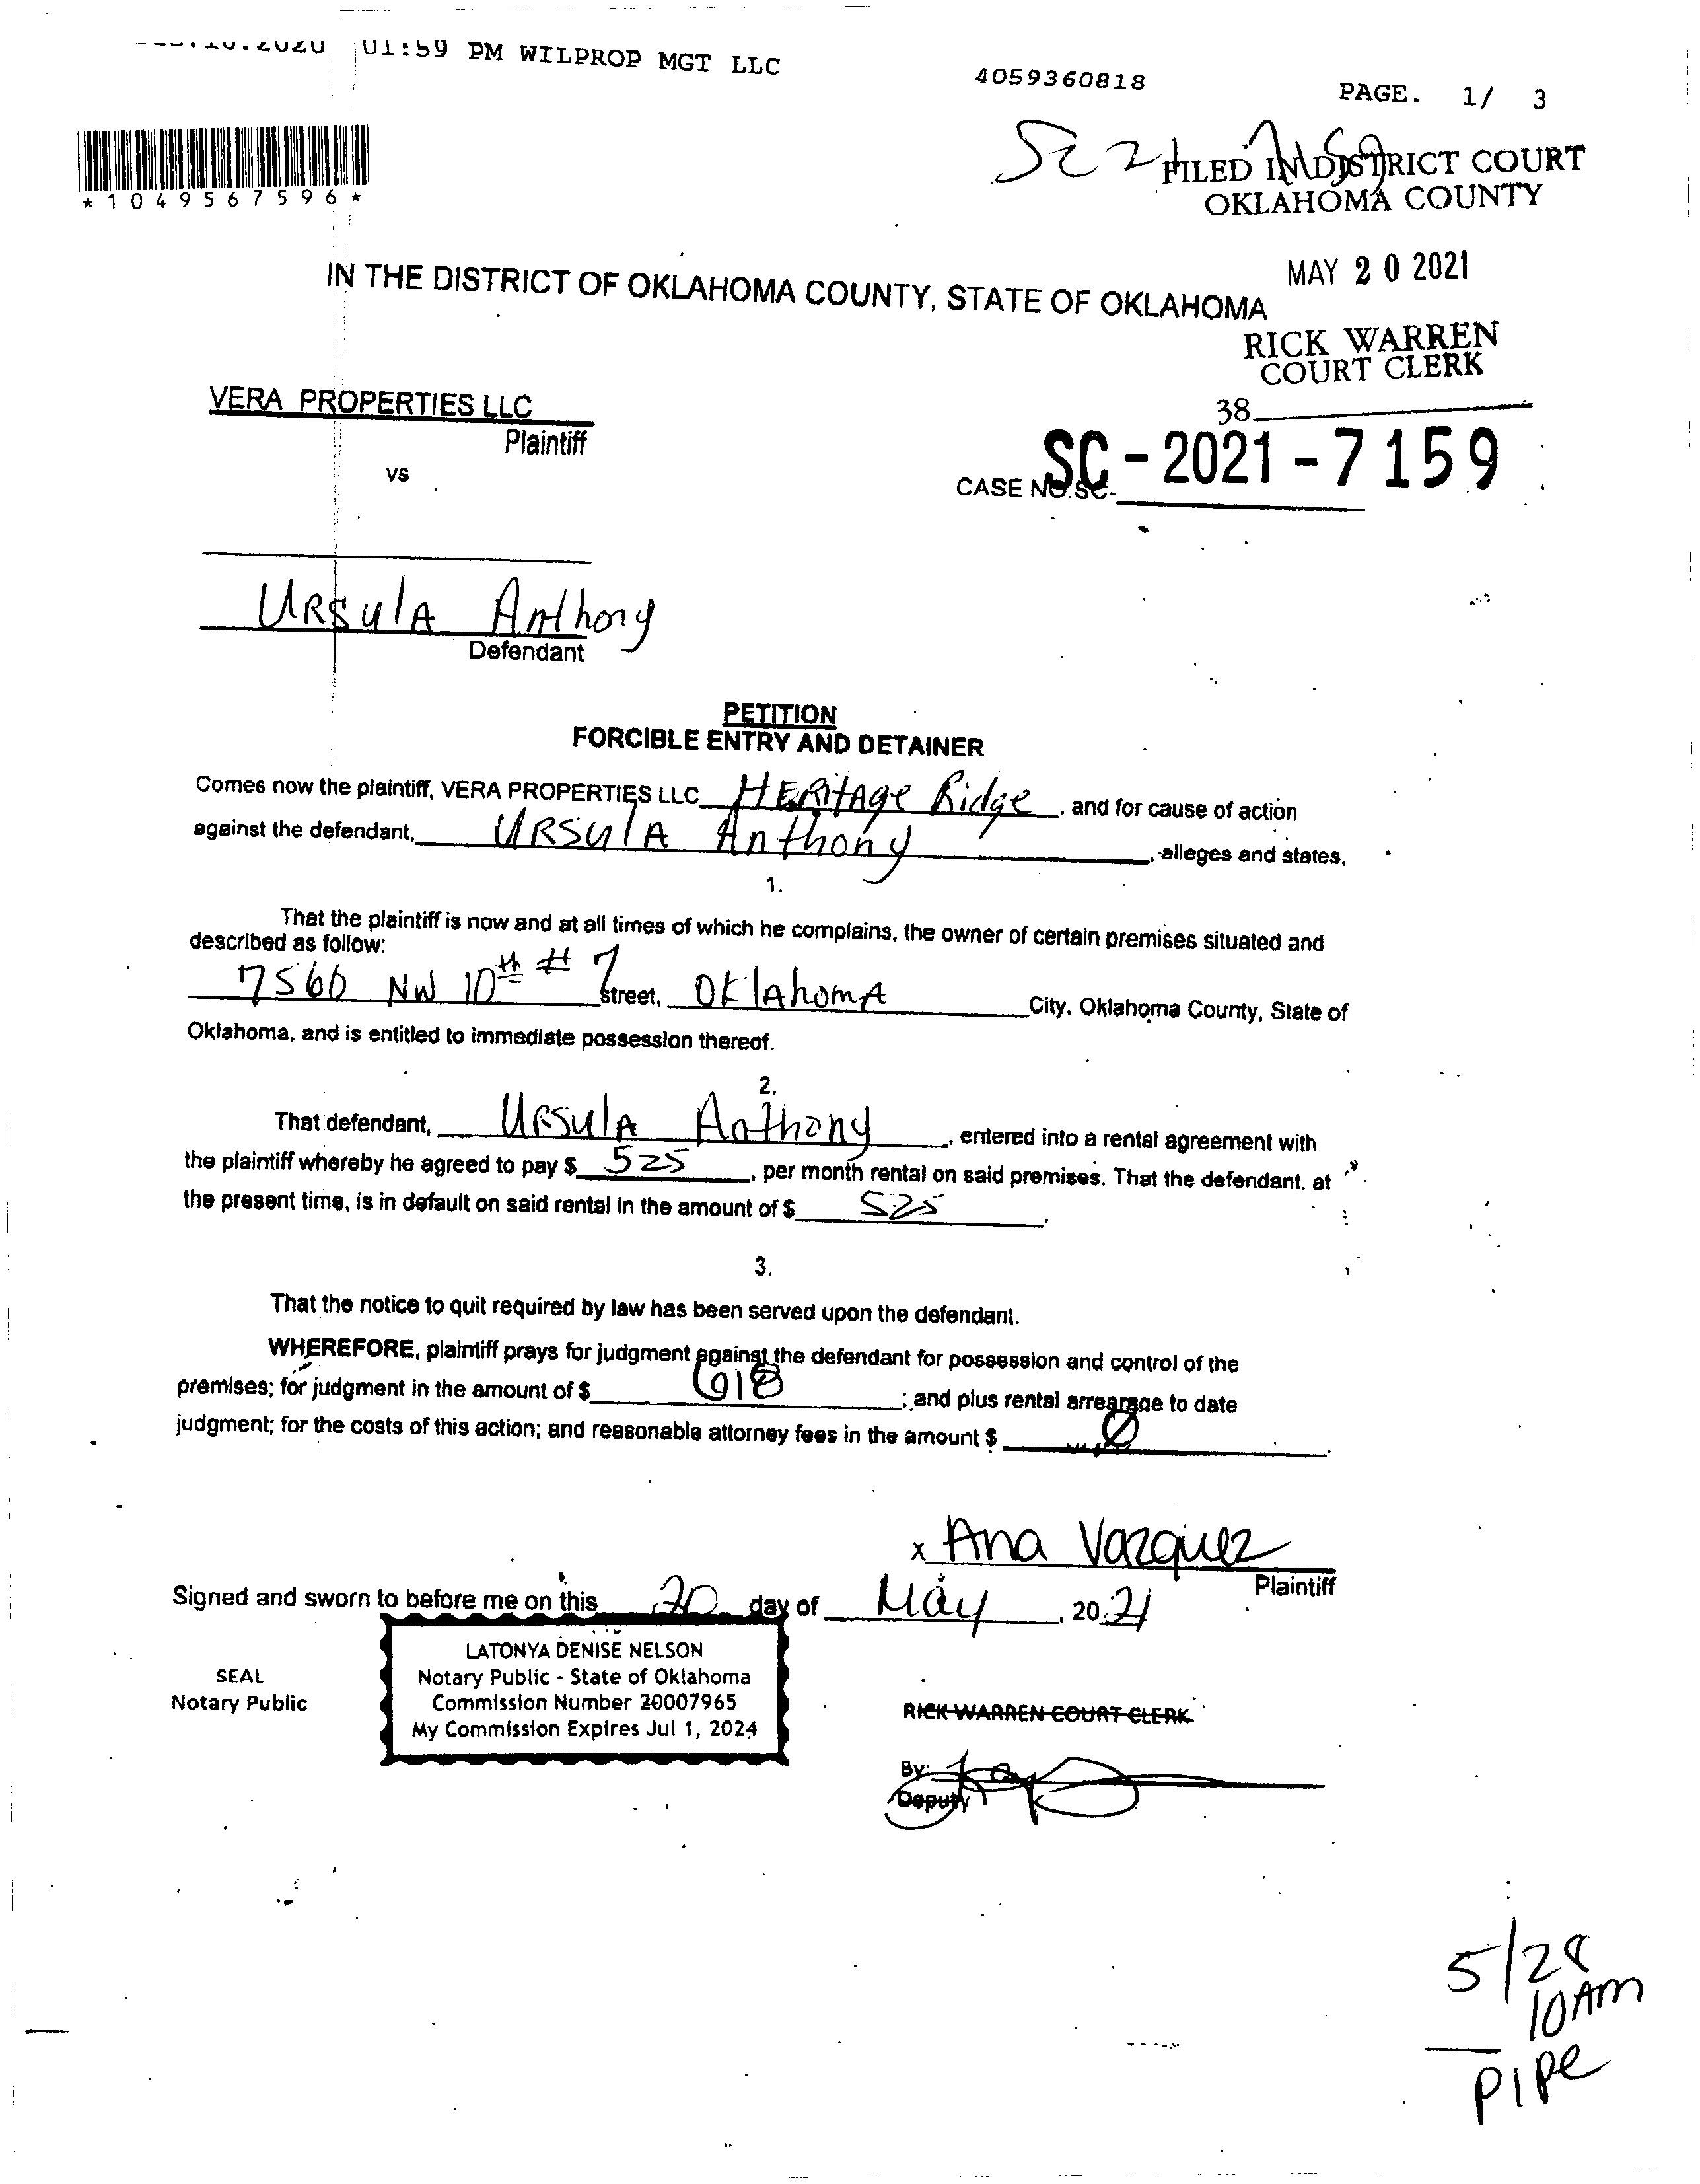 .2020 01:59 PM WILPROP MGT LLC 4059360818 PAGE. 1/ 3
*1049567596*
FILED IN DISTRICT COURT
OKLAHOMA COUNTY
MAY 20 2021
RICK WARREN
COURT CLERK
38
IN THE DISTRICT OF OKLAHOMA COUNTY, STATE OF OKLAHOMA
VERA PROPERTIES LLC
Plaintiff
vs
CASE NO.SC- SC-2021-7159
Ursula Anthony
Defendant
PETITION
FORCIBLE ENTRY AND DETAINER
Comes now the plaintiff, VERA PROPERTIES LLC Heritage Ridge, and for cause of action
against the defendant, Ursula Anthony, alleges and states,
1.
That the plaintiff is now and at all times of which he complains, the owner of certain premises situated and
described as follow:
7560 NW 10th # 7 street, Oklahoma City, Oklahoma County, State of
Oklahoma, and is entitled to immediate possession thereof.
2.
That defendant, Ursula Anthony, entered into a rental agreement with
the plaintiff whereby he agreed to pay $ 525, per month rental on said premises. That the defendant, at
the present time, is in default on said rental in the amount of $ 525.
3.
That the notice to quit required by law has been served upon the defendant.
WHEREFORE, plaintiff prays for judgment against the defendant for possession and control of the
premises; for judgment in the amount of $ 618; and plus rental arrearage to date
judgment; for the costs of this action; and reasonable attorney fees in the amount $ 0.
x Ana Vazquez
Plaintiff
Signed and sworn to before me on this 20 day of May, 2021
SEAL
Notary Public
LATONYA DENISE NELSON
Notary Public - State of Oklahoma
Commission Number 20007965
My Commission Expires Jul 1, 2024
RICK WARREN COURT CLERK
By:
Deputy
5/28
10Am
Pipe